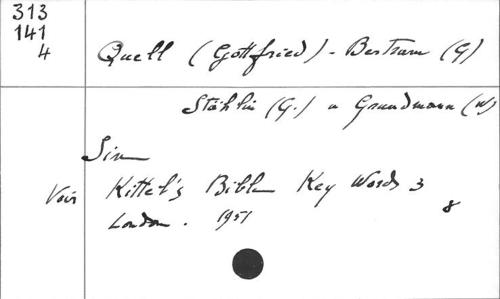 313
141
4
Quell (Gottfried) - Bertram (G)
Stählin (G.) a Grundmann (W)
Sin
Voir Kittel's Bible Key Words 3
London. 1951 8